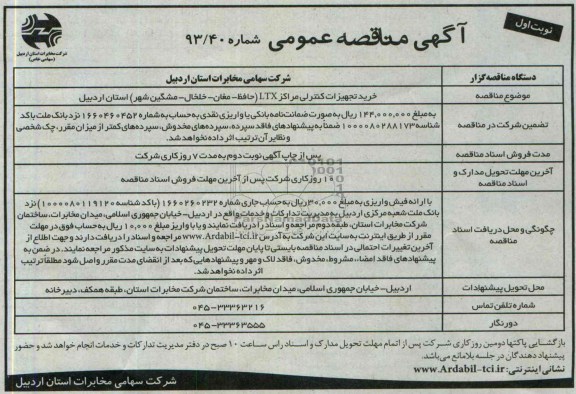 نوبت اول
آگهی مناقصه عمومی شماره ۹۳/۴۰
شرکت مخابرات استان اردبیل
(سهامی خاص)
دستگاه مناقصه‌گزار
شرکت سهامی مخابرات استان اردبیل
موضوع مناقصه
خرید تجهیزات کنترلی مراکز LTX (حافظ- مغان- خلخال- مشگین شهر) استان اردبیل
تضمین شرکت در مناقصه
به مبلغ ۱۴۴,۰۰۰,۰۰۰ ریال به صورت ضمانت‌نامه بانکی یا واریزی نقدی به حساب به شماره ۱۶۶۰۴۶۰۴۵۲ نزد بانک ملت با کد
شناسه ۱۰۰۰۰۸۰۲۸۸۱۷۳ ضمناً به پیشنهادهای فاقد سپرده، سپرده‌های مخدوش، سپرده‌های کمتر از میزان مقرر، چک شخصی
و نظایر آن ترتیب اثر داده نخواهد شد.
مدت فروش اسناد مناقصه
پس از چاپ آگهی نوبت دوم به مدت ۷ روز کاری شرکت
آخرین مهلت تحویل مدارک و
اسناد مناقصه
۱۰ روز کاری شرکت پس از آخرین مهلت فروش اسناد مناقصه
چگونگی و محل دریافت اسناد
مناقصه
با ارائه فیش واریزی به مبلغ ۳۰,۰۰۰ ریال به حساب جاری شماره ۱۶۶۰۲۶۰۲۳۲ (با کد شناسه ۱۰۰۰۰۸۰۱۱۹۱۲۰) نزد
بانک ملت شعبه مرکزی اردبیل به مدیریت تدارکات و خدمات واقع در اردبیل- خیابان جمهوری اسلامی، میدان مخابرات، ساختمان
شرکت مخابرات استان، طبقه دوم مراجعه و اسناد را دریافت نمایند و یا با واریز مبلغ ۱۰,۰۰۰ ریال به حساب فوق در مهلت
مقرر از طریق اینترنت به سایت این شرکت به آدرس www.Ardabil-tci.ir مراجعه و اسناد را دریافت دارند و جهت اطلاع از
آخرین تغییرات احتمالی در اسناد مناقصه بایستی تا پایان مهلت تحویل پیشنهادات به سایت مذکور مراجعه نمایند. در ضمن به
پیشنهادهای فاقد امضاء، مشروط، مخدوش، فاقد لاک و مهر و پیشنهادهایی که بعد از انقضای مدت مقرر واصل شود مطلقاً ترتیب
اثر داده نخواهد شد.
محل تحویل پیشنهادات
اردبیل- خیابان جمهوری اسلامی، میدان مخابرات، ساختمان شرکت مخابرات استان، طبقه همکف، دبیرخانه
شماره تلفن تماس
۰۴۵-۳۳۳۶۳۲۱۶
دورنگار
۰۴۵-۳۳۳۶۳۵۵۵
بازگشایی پاکتها دومین روز کاری شرکت پس از اتمام مهلت تحویل مدارک و اسناد راس ساعت ۱۰ صبح در دفتر مدیریت تدارکات و خدمات انجام خواهد شد و حضور
پیشنهاد دهندگان در جلسه بلامانع می‌باشد.
نشانی اینترنتی: www.Ardabil-tci.ir
شرکت سهامی مخابرات استان اردبیل